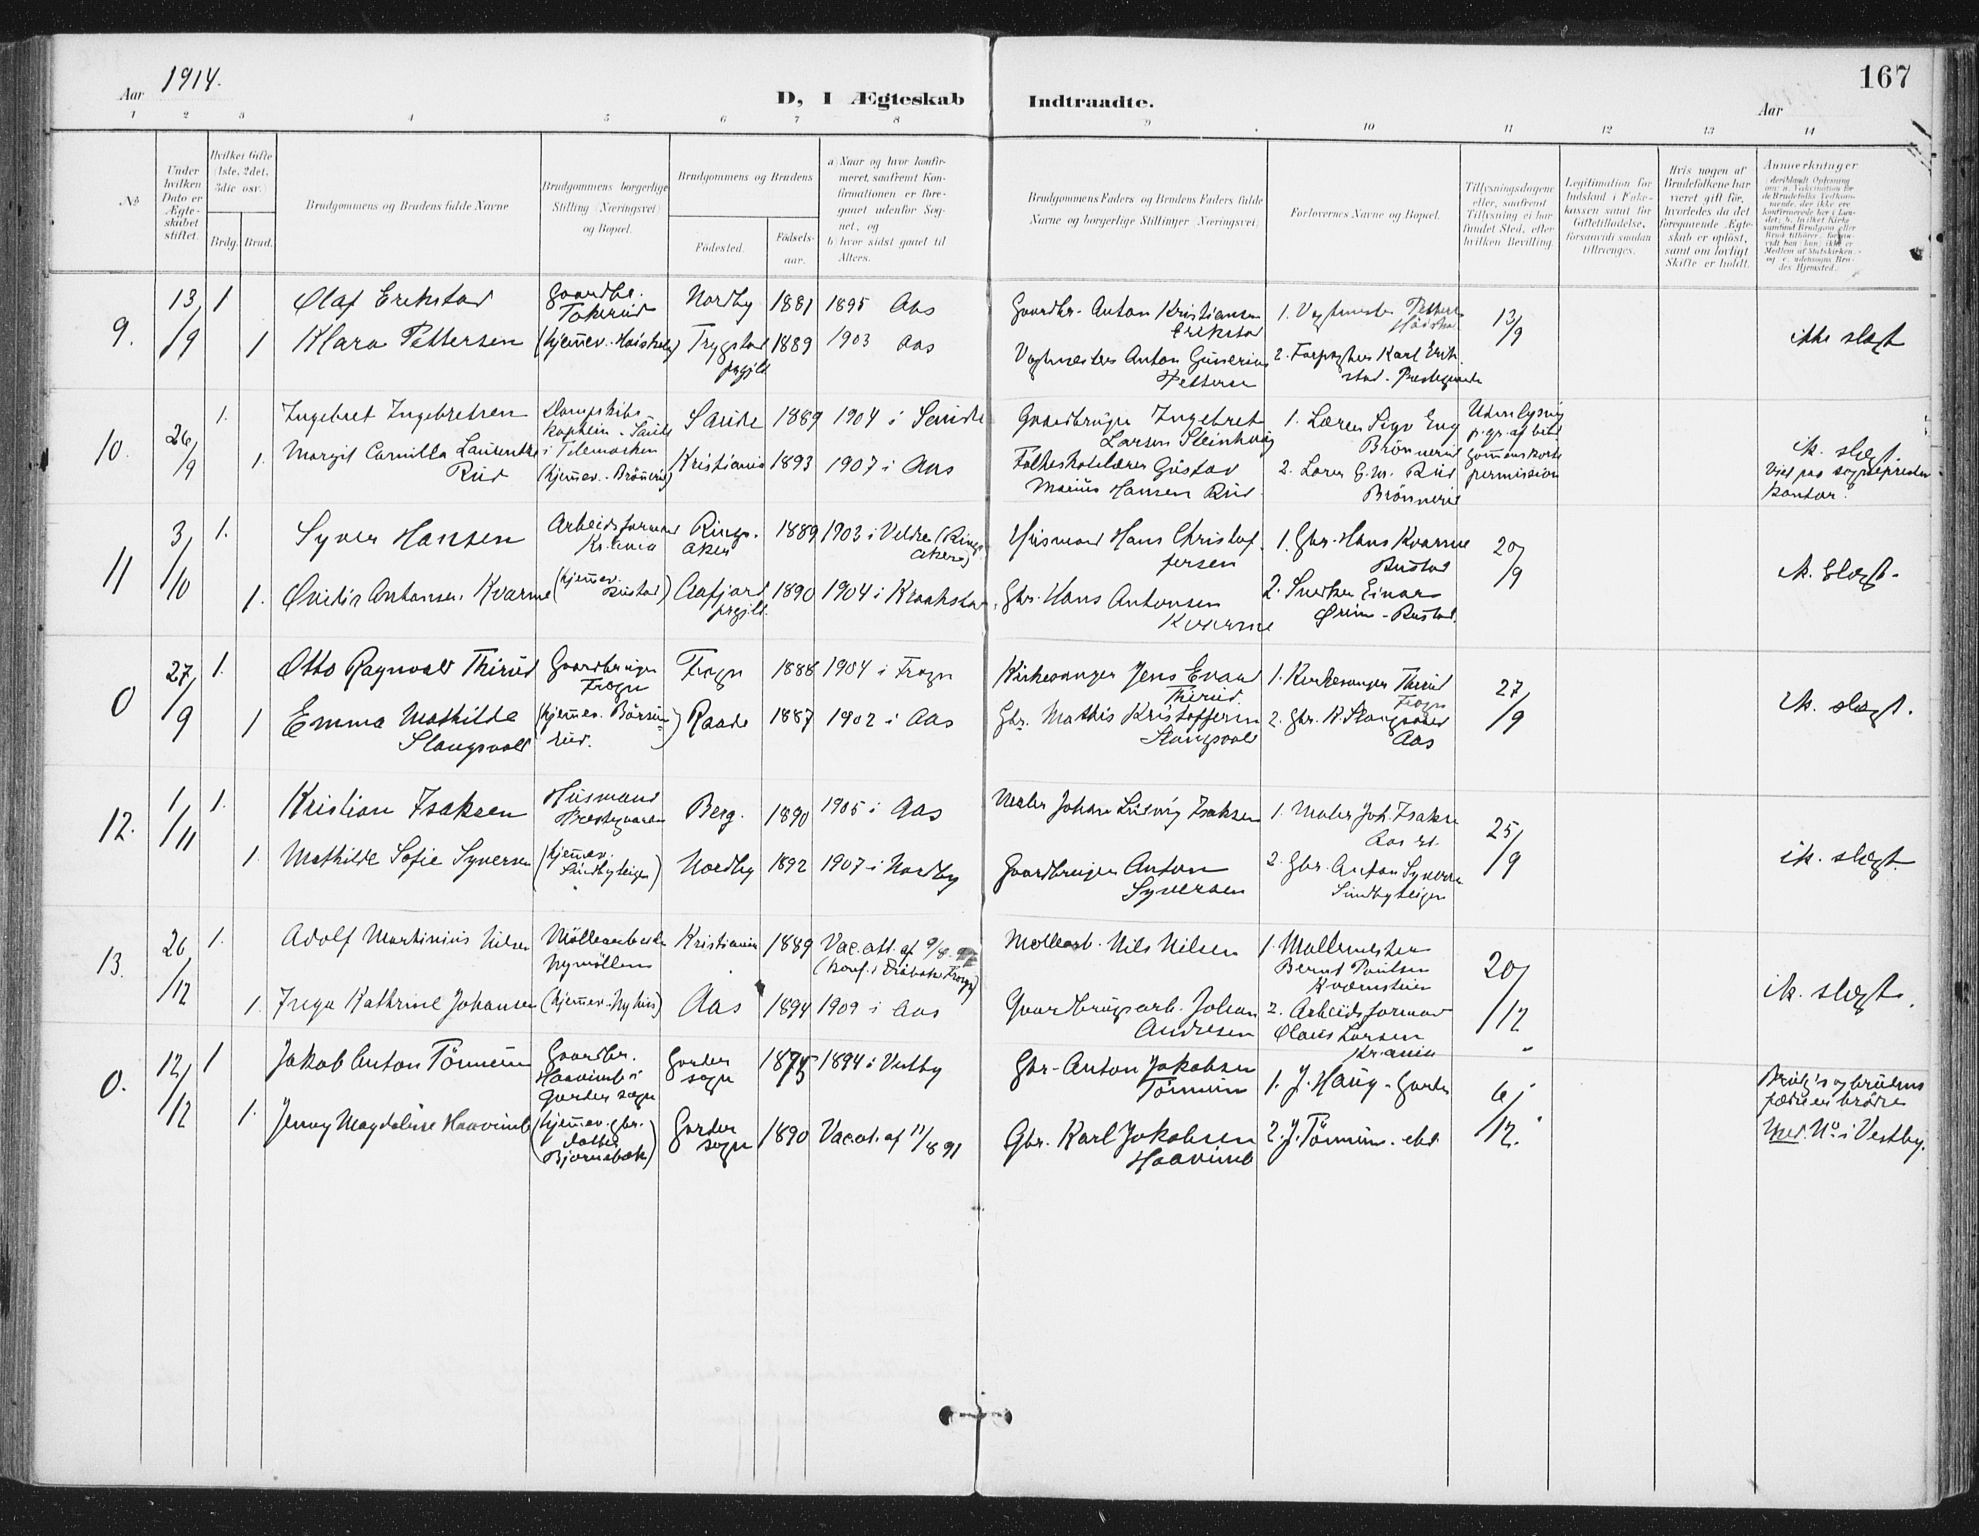 Aar 1914.
D, I Ægteskab Indtraadte.
167
Aar
1 2 3 4 5 6 7 8 9 10 11 12 13 14
No.
Under hvilken Dato er Ægteskabet stiftet.
Hvilket Gifte (1ste, 2det, 3die osv.)
Brdg. Brud.
Brudgommens og Brudens fulde Navne
Brudgommens borgerlige Stilling (Næringsvei) og Bopæl.
Brudgommens og Brudens
Fødested. Fødselsaar.
a) Naar og hvor konfirmeret, saafremt Konfirmationen er foregaaet udenfor Sognet, og
b) hvor sidst gaaet til Alters.
Brudgommens Faders og Brudens Faders fulde Navne og borgerlige Stillinger (Næringsvei).
Forlovernes Navne og Bopæl.
Tillysningsdagene eller, saafremt Tillysning ei har fundet Sted, efter hvilken Bevilling.
Legitimation for Indskud i Enkekassen samt for Giftetilladelse, forsaavidt saadan tiltrænges.
Hvis nogen af Brudefolkene har været gift før, hvorledes da det foregaaende Ægteskab er opløst, samt om lovligt Skifte er holdt.
Anmærkninger
9. 13/9 1 Olaf Erikstad Gaardbr. Tokerud Nordby 1881 1895 Aas
Gaardbr. Anton Kristiansen Erikstad
1 Klara Pettersen Trygstad prgjld 1889 1903 Aas
Vagtmester Anton Gunerius Pettersen
2. Forpagter Karl Erikstad - Prestegaarden
13/9
ikke slægt
10. 26/9 1. Ingebret Ingebretsen Dampskibs kaptein - Saude i Telemarken Saude 1889 1904 i Saude
Gaardbruger Ingebret Larsen
1. Lærer Sigv. Eng Brönnerud
1. Margit Camilla Laurentze Rud (hjemmev. Brönnerud) Kristiania 1893 1907 i Aas
Folkeskolelærer Gustav Marius Hansen Rud.
2. Lærer G. M. Rud Brönnerud
permission
ik. slægt.
Viet paa sogneprestens kontor.
11 3/10 1. Syver Hansen Arbeidsformand Kr.ania Ringsaker 1889 1903 i Veldre (Ringsaker)
Husmand Hans Christoffersen
1. Gbr. Hans Kvarme Rustad
1. Antonsen Kvarme (hjemmev. Rustad) Aafjord prgjld. 1890 1904 i Kraakstad.
Gbr. Hans Antonsen Kvarme
2. Snedker Einar - Rustad.
20/9
ik. Slægt.
0 27/9 1. Otto Ragnvald Thirud Gaardbruger Frogn Frogn 1888 1904 i Frogn
Kirkesanger Jens Evald Thirud.
1. Kirkesanger Thirud Frogn
1 Emma Mathilde Slangsvold (hjemmev. Börsumrud.) Raade 1887 1902 i Aas
Gbr. Mathis Kristoffersen Slangsvold
2. Gbr. K. Slangsvold Aas
27/9
ik. slægt.
12. 1/11 1. Kristian Isaksen Husmand Prestegaarden Berg. 1890 1905 i Aas
Maler Johan Ludvig Isaksen
1. Maler Joh. Isaksen Aas st.
1. Mathilde Sofie Syversen (hjemmev. Sundbyteigen) Nordby 1892 1907 i Nordby
Gaardbruger Anton Syversen
2. Gbr. Anton Syversen Sundbyteigen
25/9
ik. slægt.
13. 26/12 1. Adolf Martinius Nilsen Möllearbeider Nymöllen Kristiania 1889 Vac.att. af 9/8
(konf. i Dröbak Frogn)
Möllearb. Nils Nilsen
1. Möllemester Bernt Poulsen Kværnstuen
1. Inga Kathrine Johansen (hjemmev. Nyhus) Aas 1894 1909 i Aas
Gaardbrugsarb. Johan Andresen
2. Arbeidsformand Olaus Larsen Kr.ania
20/12
ik. slægt.
0. 12/12 1 Jakob Anton Tömmum Gaardbr. Haavimb i Garder sogn Garder sogn 1875 1894 i Vestby
Gbr. Anton Jakobsen Tömmum
1. J. Haug - Garder
1. Jenny Magdalene Haavimb (hjemmev. gbr. datter Bjørnebæk) Garder sogn 1890 Vac.at. af 11/8 91
Gbr. Karl Jakobsen Haavimb
2. J. Tömmum. ebd.
6/12.
Brudg's og brudens fædre er brödre
Med. No. i Vestby.